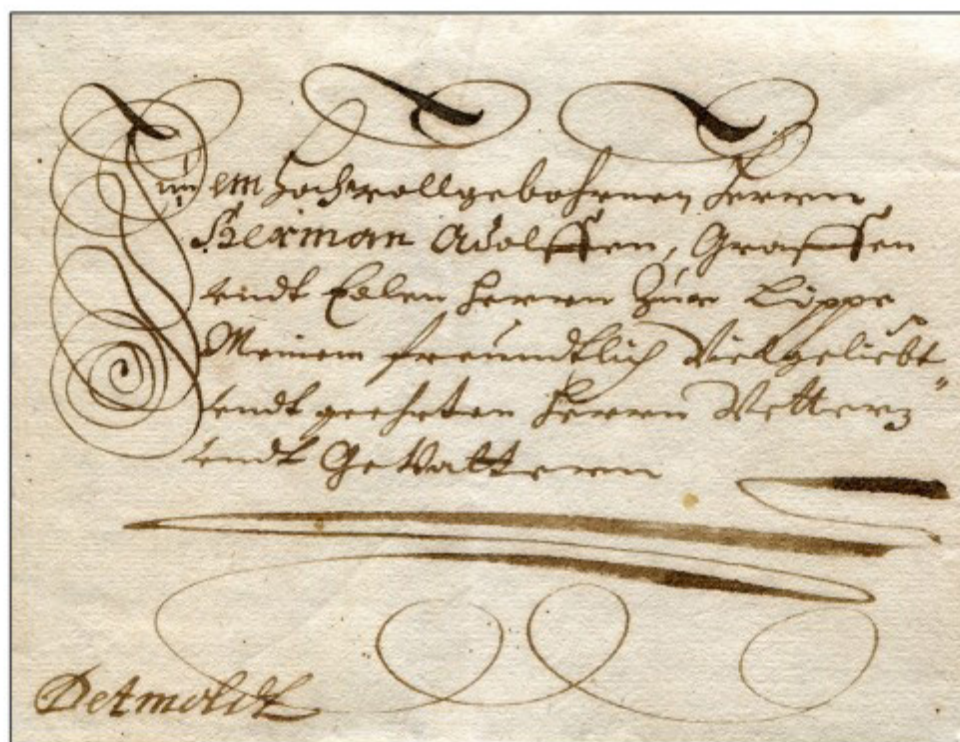 Dem Hochwollgebohrnen Herrn,
Herman Adolffen, Graffen
undt Edlen Herrn Zur Lippe
Meinem freundtlich Vielgeliebt
undt geehrten Herrn Vettern
undt Gevattern
Detmoldt